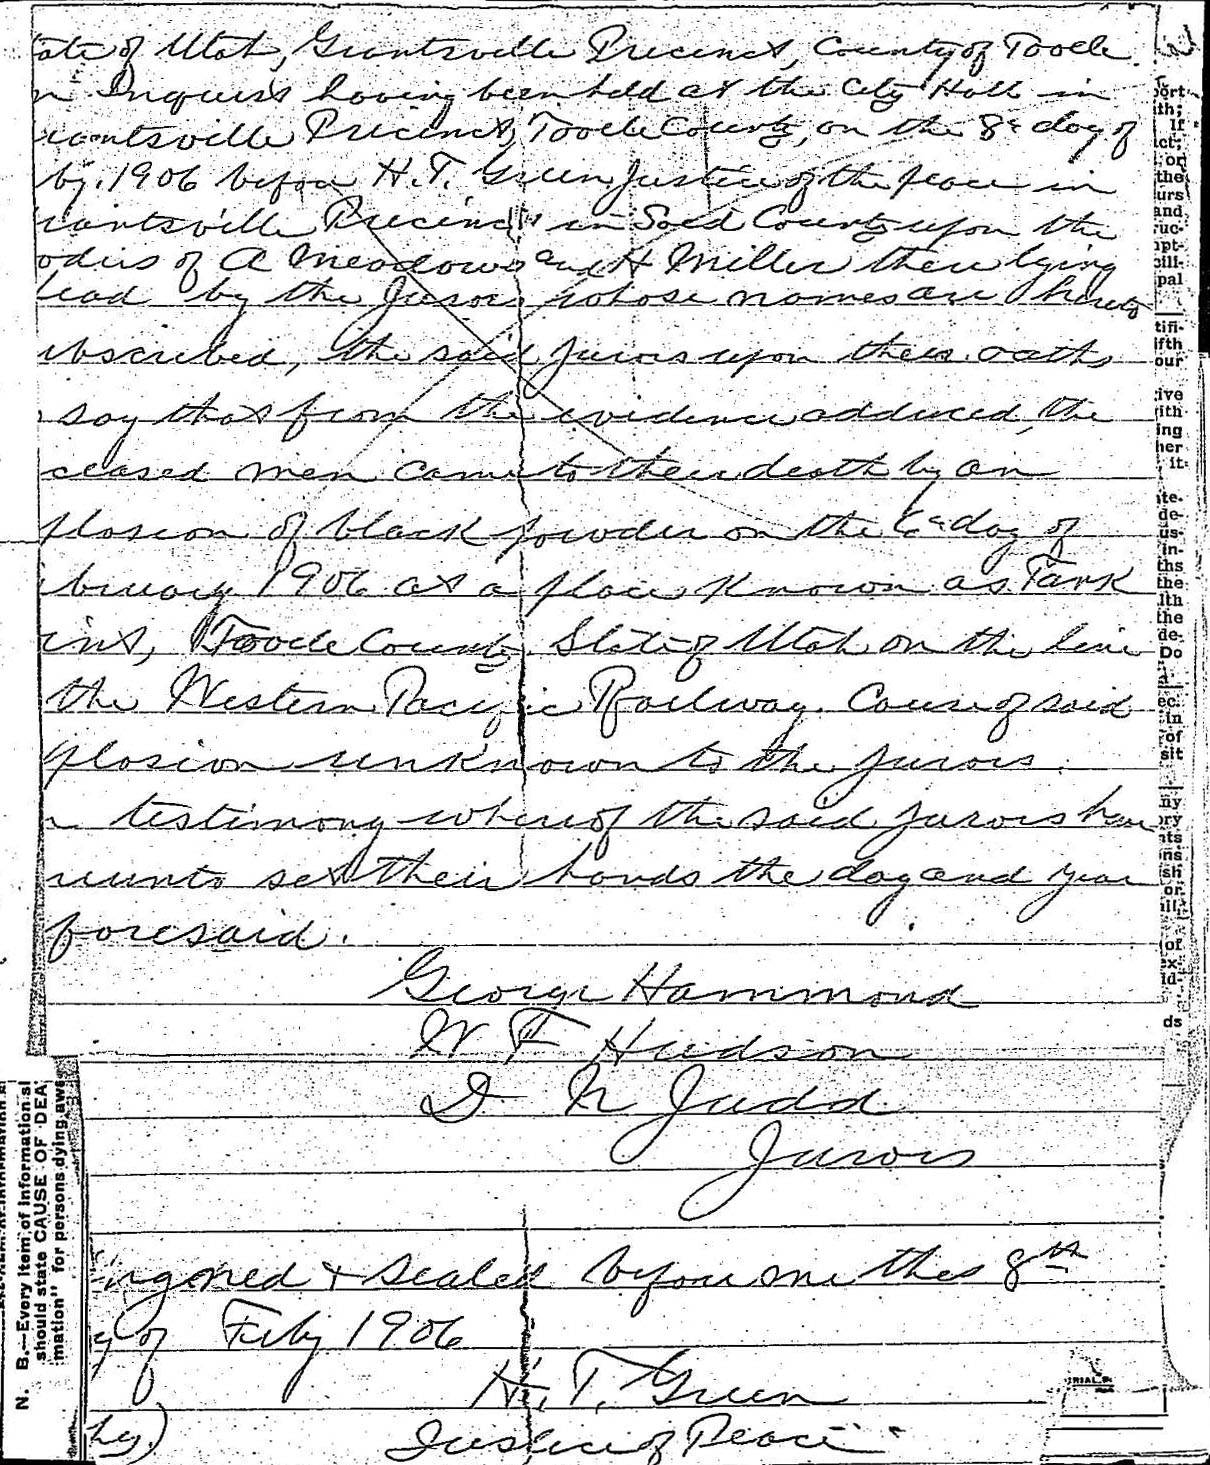 ate of Utah, Grantsville Precinct, County of Tooele
n Inquest having been held at the City Hall in
rantsville Precinct, Tooele County, on the 8th day of
by. 1906 before H. T. Green Justice of the peace in
rantsville Precinct in Said County upon the
odies of A Meadows and H Miller there lying
dead by the Jurors whose names are hereto
ubscribed, the said jurors upon their oaths
say that from the evidence adduced, the
ceased men came to their death by an
plosion of black powder on the 6th day of
bruary 1906 at a place known as Tank
int, Tooele County State of Utah on the line
the Western Pacific Railway. Cause of said
plosion unknown to the jurors.
n testimony where of the said jurors have
reunto set their hands the day and year
foresaid.
George Hammond
W F Hudson
D N Judd
Jurors
ingned & Sealed before me this 8th
y of Feby 1906
H. T. Green
Justice of Peace
N. B.—Every item of information sh
should state CAUSE OF DEA
mation" for persons dying awa
port
ith;
If
act;
or
the
urs
and
ruc-
apt-
cill-
pal
tifi-
ifth
our
ive
ith
ing
her
it
ate-
de-
us-
in-
ths
the
lth
the
de-
Do
ec.
in
of
sit
ny
ory
nts
ons
sh
or
ill,
of
ex
id-
ds